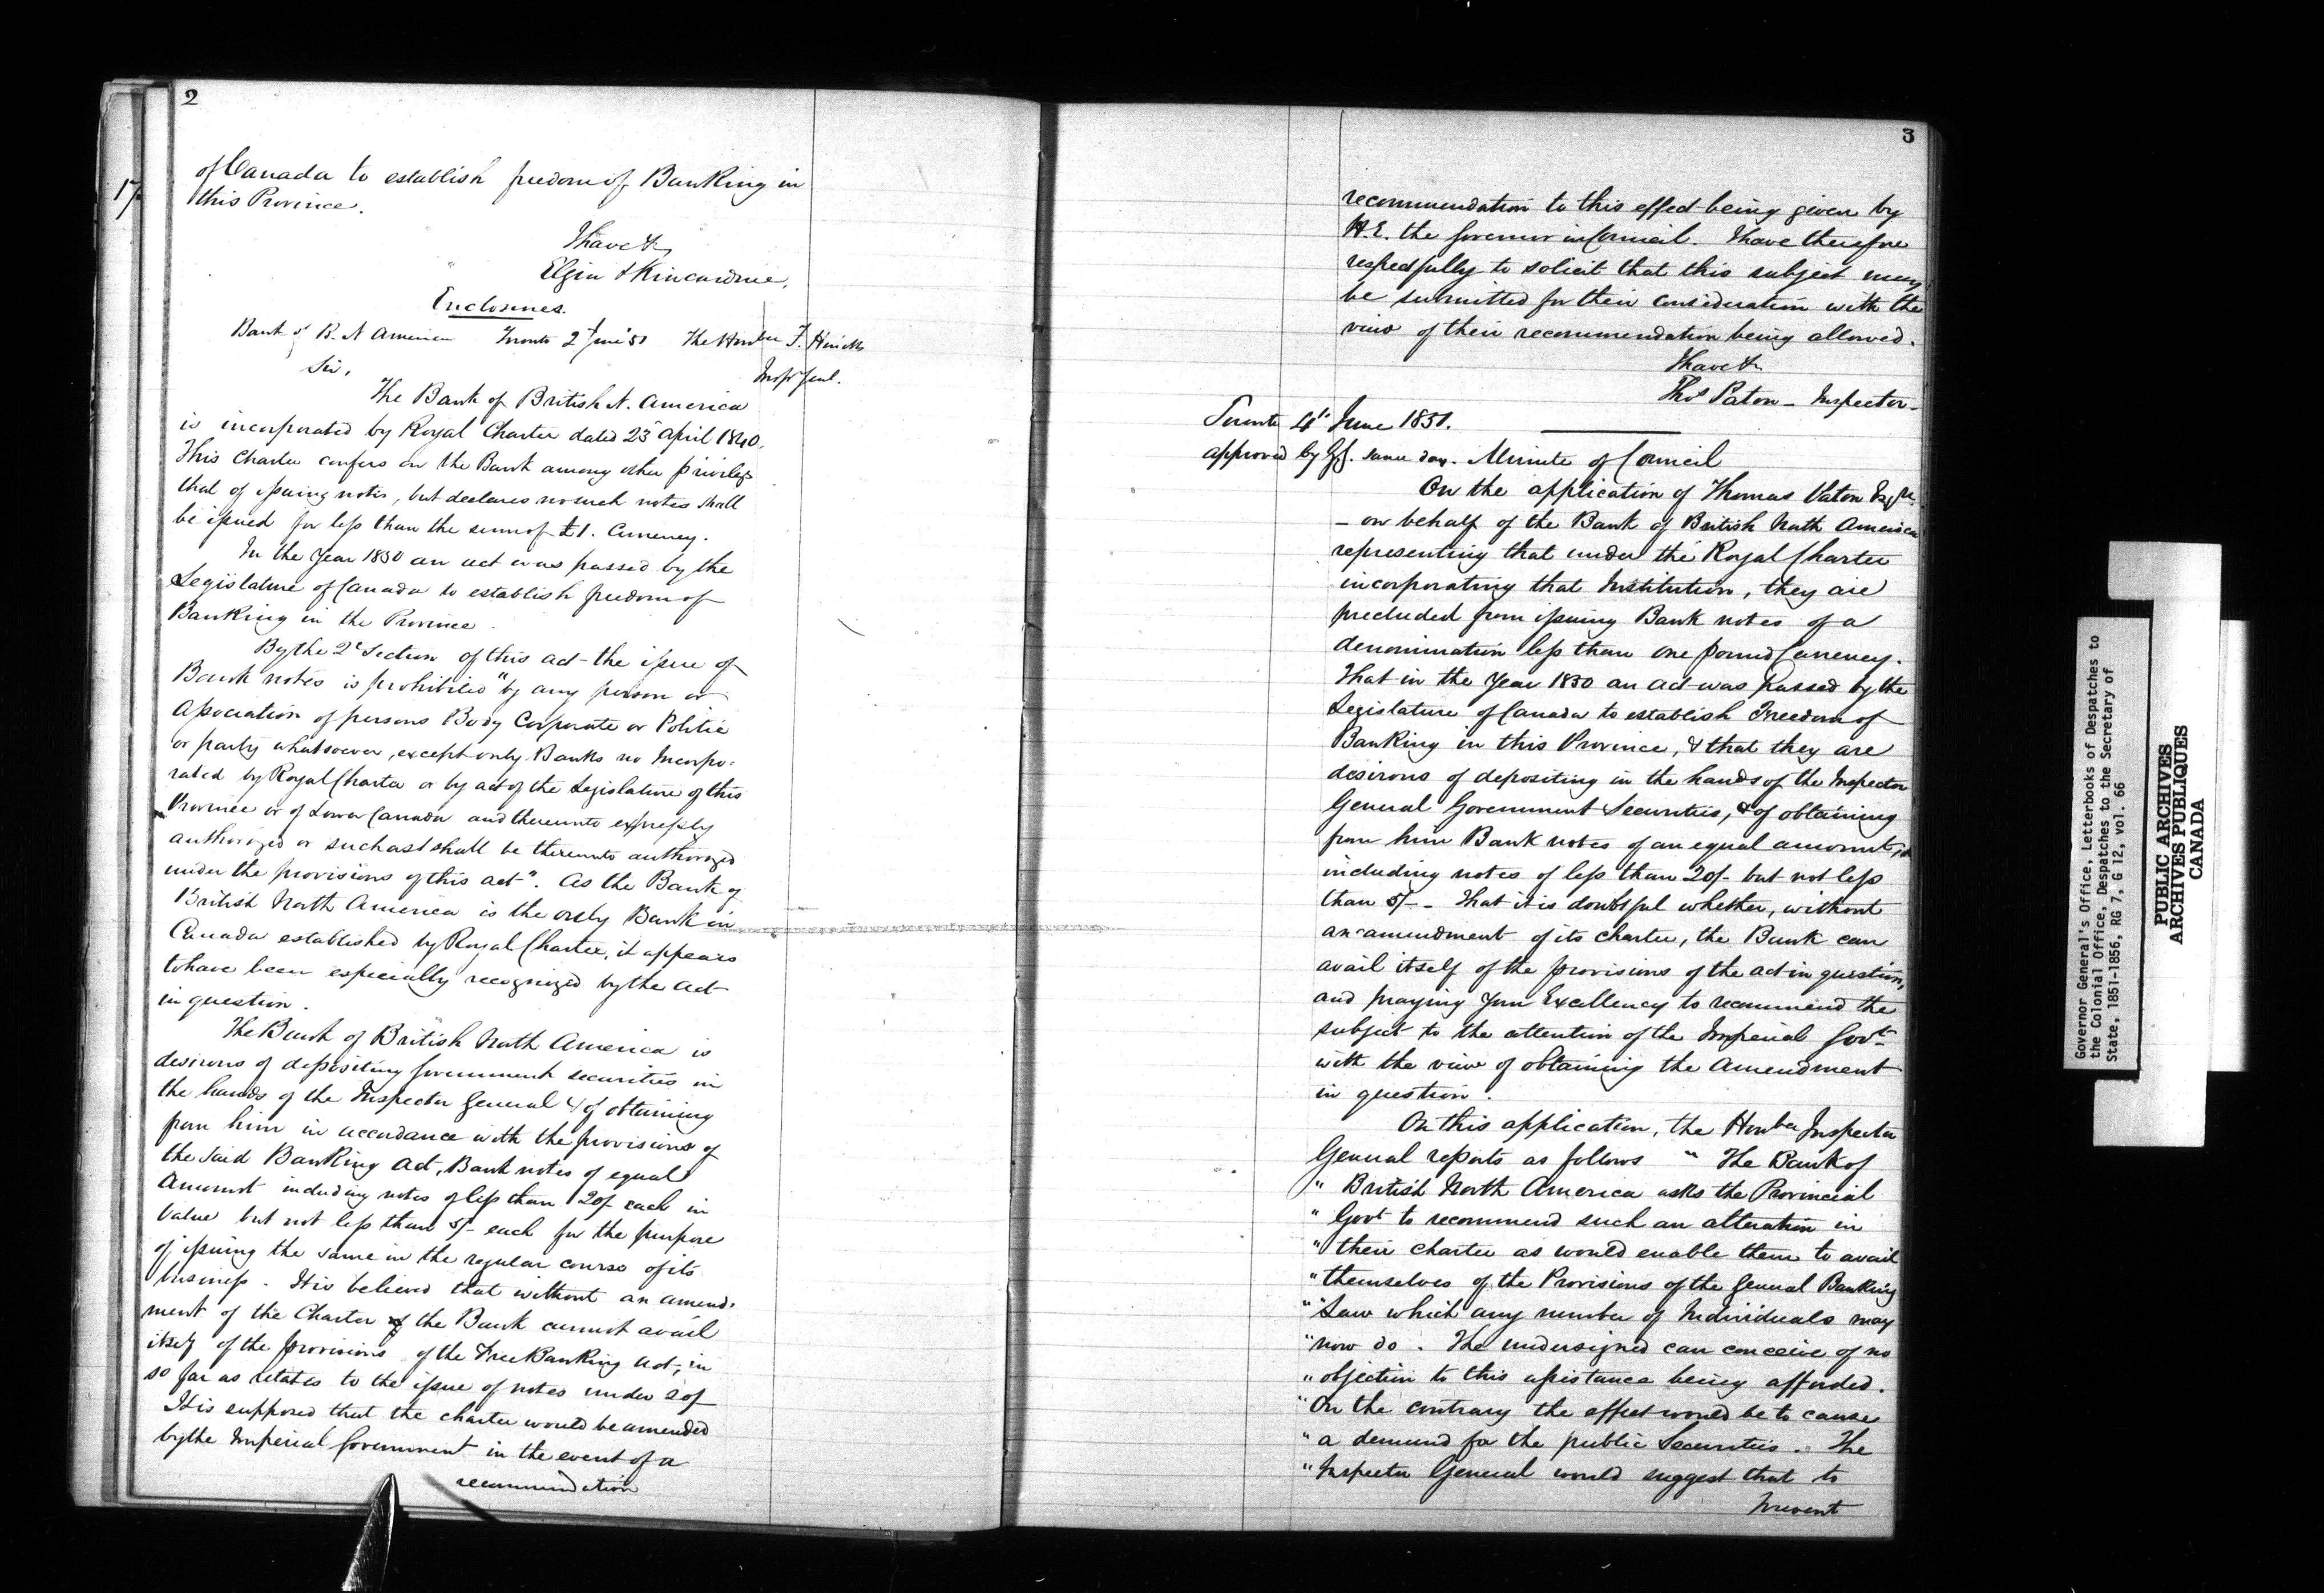 2
17
of Canada to establish freedom of Banking in
this Province.
I have &c
Elgin & Kincardine.
Enclosures.
Bank of B. N America Toronto 2d June '51 The Honble F. Hincks
Inspr Genl.
Sir,
The Bank of British N. America
is incorporated by Royal Charter dated 23d April 1840.
This Charter confers on the Bank among other privileges
that of issuing notes, but declares no such notes shall
be issued for less than the sum of £1. Currency.
In the Year 1850 an act was passed by the
Legislature of Canada to establish freedom of
Banking in the Province.
By the 2d Section of this act the issue of
Bank notes is prohibited "by any person or
Association of persons Body Corporate or Politic
or party whatsoever, except only Banks so Incorpo-
rated by Royal Charter or by act of the Legislature of this
Province or of Lower Canada and thereunto expressly
authorized or such as shall be thereunto authorized
under the provisions of this act". As the Bank of
British North America is the only Bank in
Canada established by Royal Charter, it appears
to have been especially recognized by the act
in question.
The Bank of British North America is
desirous of depositing Government securities in
the hands of the Inspector General & of obtaining
from him in accordance with the provisions of
the said Banking Act, Bank notes of equal
Amount including notes of less than 20/- each in
Value but not less than 5/- each for the purpose
of issuing the same in the regular course of its
business. It is believed that without an amend-
ment of the Charter of the Bank cannot avail
itself of the provisions of the Free Banking Act, in
so far as relates to the issue of notes under 20/-
It is supposed that the charter would be amended
by the Imperial Government in the event of a
recommendation
3
recommendation to this effect being given by
H.E. the Governor in Council. I have therefore
respectfully to solicit that this subject may
be submitted for their consideration with the
view of their recommendation being allowed.
I have &c
Thos Paton - Inspector -
Toronto 4th June 1851.
approved by G.G. same day. Minute of Council
On the application of Thomas Paton Esqre.
- on behalf of the Bank of British North America
representing that under the Royal Charter
incorporating that Institution, they are
precluded from issuing Bank notes of a
denomination less than one pound Currency.
That in the Year 1850 an act was passed by the
Legislature of Canada to establish Freedom of
Banking in this Province, & that they are
desirous of depositing in the hands of the Inspector
General Government Securities, & of obtaining
from him Bank notes of an equal amount,
including notes of less than 20/- but not less
than 5/- - That it is doubtful whether, without
an amendment of its charter, the Bank can
avail itself of the provisions of the act in question,
and praying Your Excellency to recommend the
subject to the attention of the Imperial Govt
with the view of obtaining the Amendment
in question.
On this application, the Honble Inspector
General reports as follows " The Bank of
" British North America asks the Provincial
" Govt to recommend such an alteration in
" their charter as would enable them to avail
" themselves of the Provisions of the General Banking
" Law which any number of Individuals may
" now do. The undersigned can conceive of no
" objection to this assistance being afforded.
" On the contrary the effect would be to cause
" a demand for the public Securities. The
" Inspector General would suggest that to
prevent
Governor General's Office, Letterbooks of Despatches to
the Colonial Office, Despatches to the Secretary of
State, 1851-1856, RG 7, G 12, vol. 66
PUBLIC ARCHIVES
ARCHIVES PUBLIQUES
CANADA